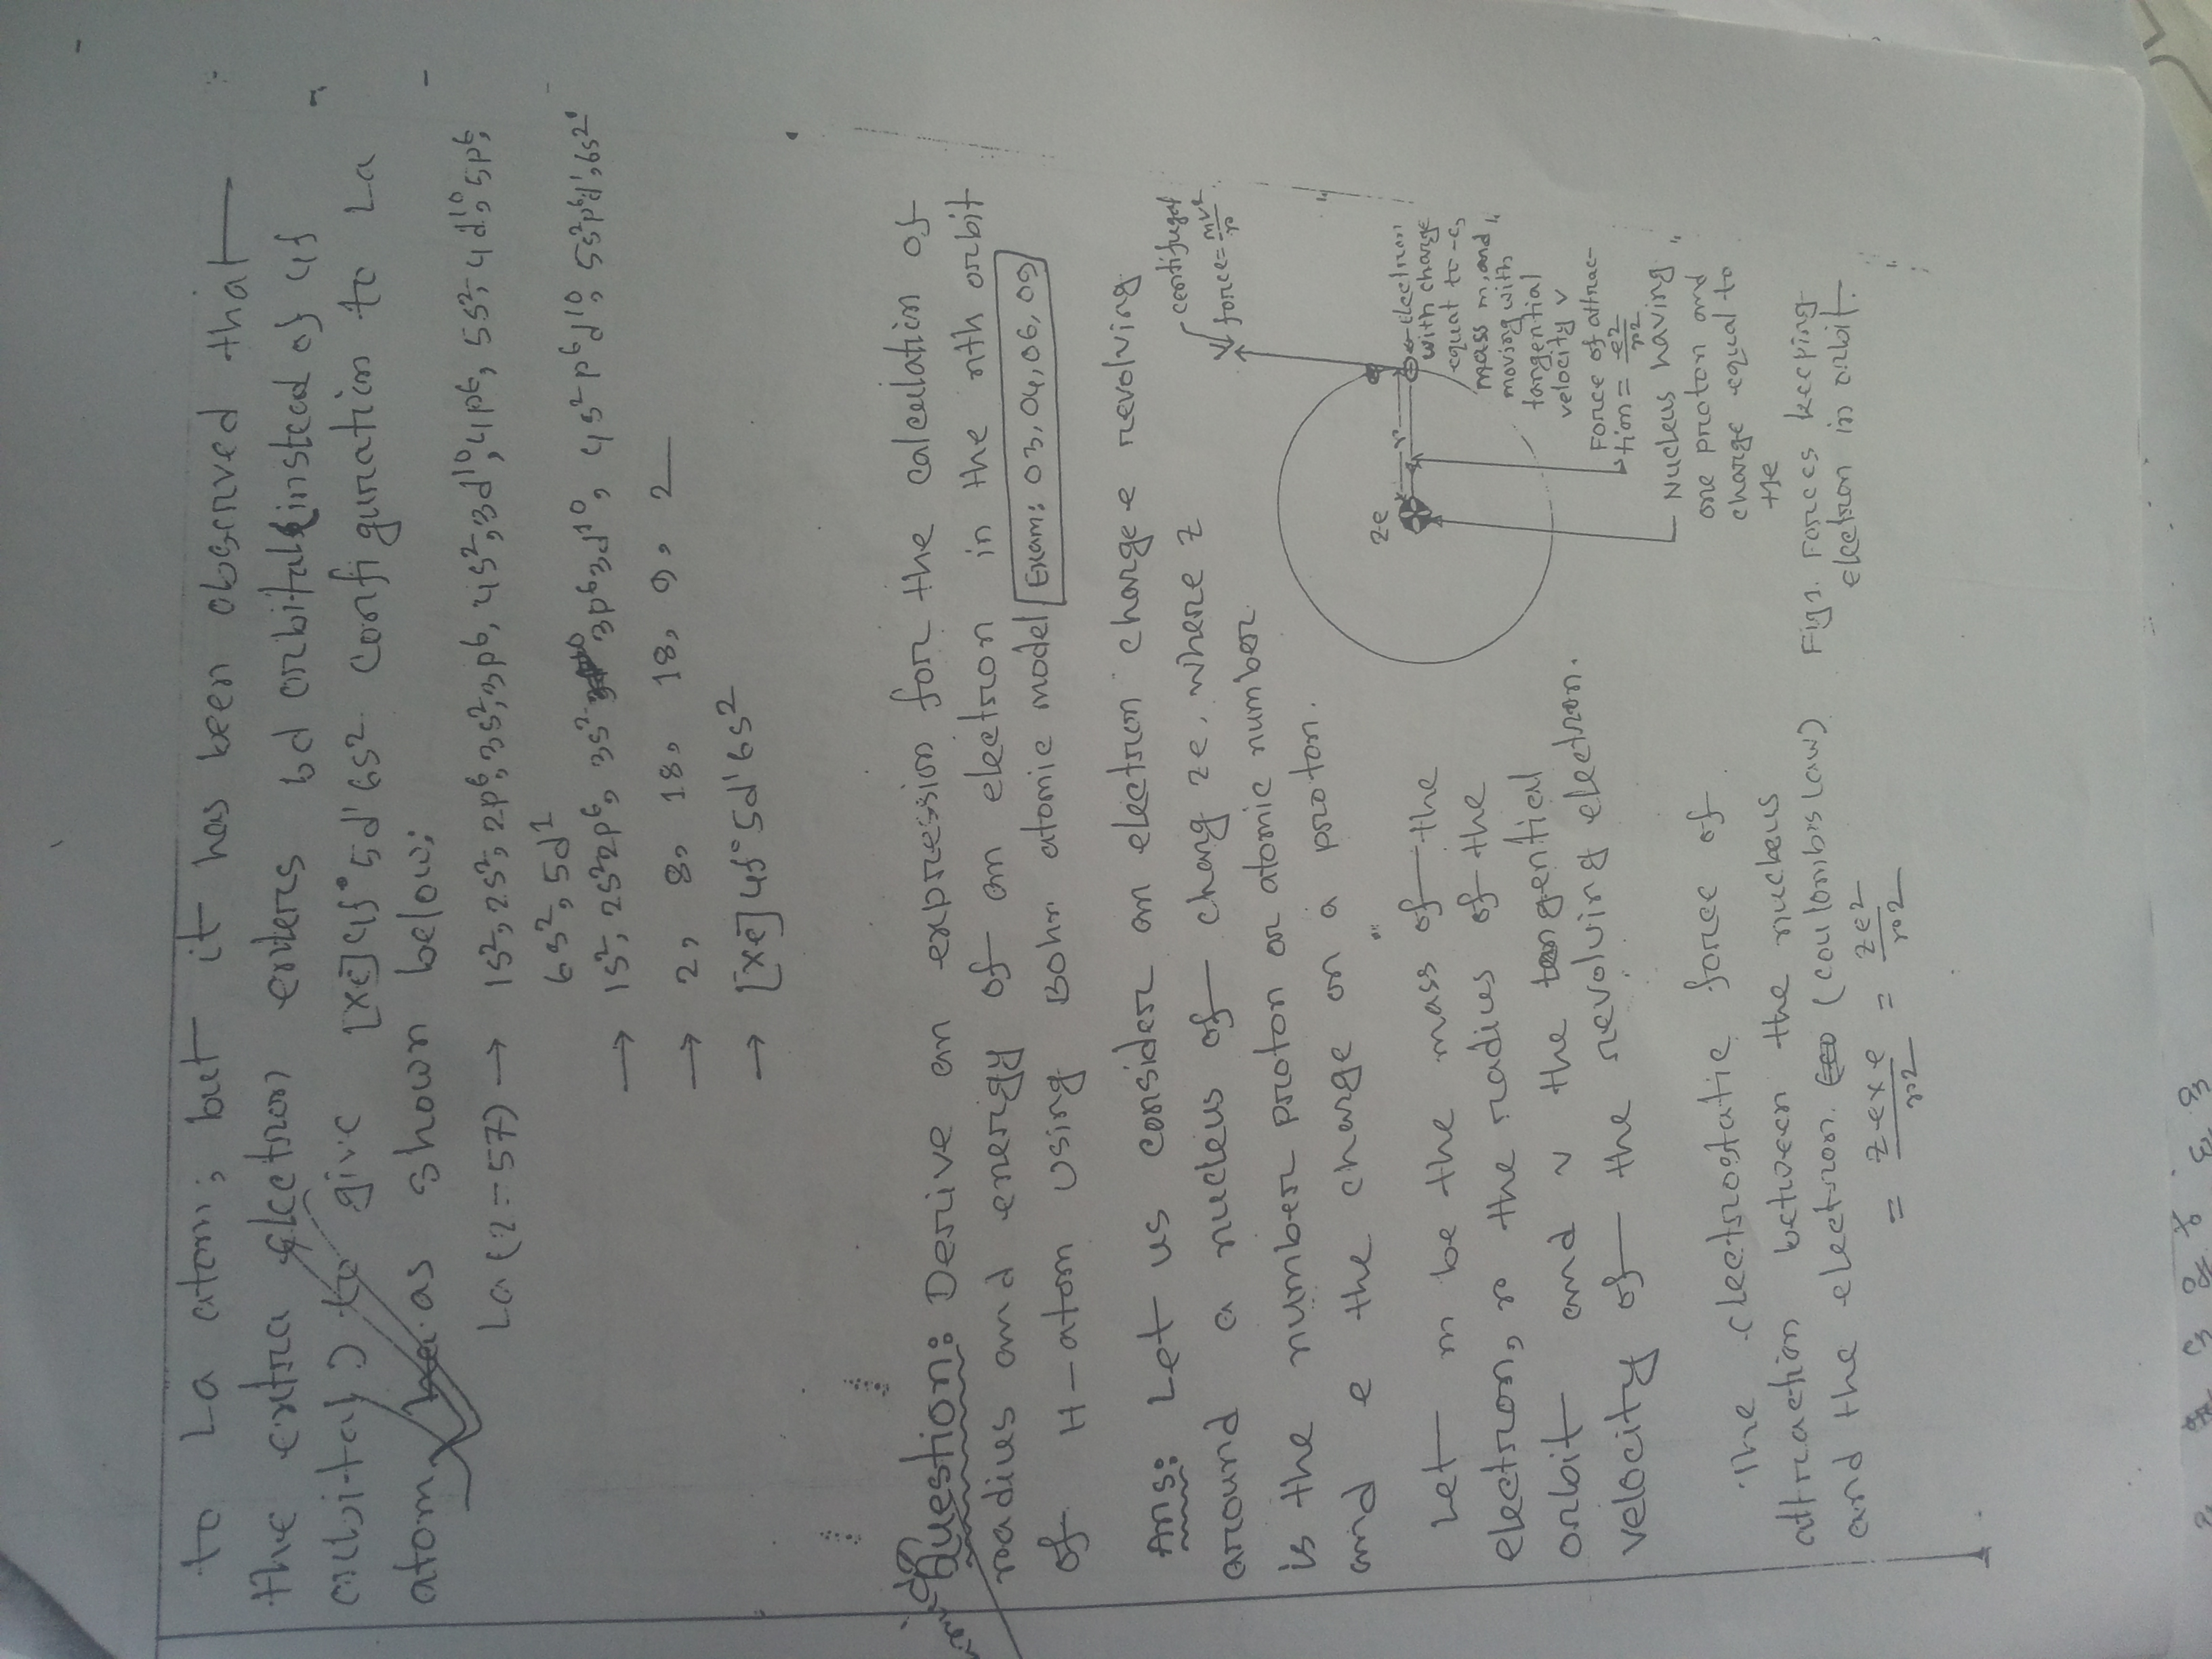 to La atom; but it has been observed that
the extra electron enters 5d orbital (instead of 4f
orbital) to give [Xe]4f°5d¹6s² configuration to La
atom as shown below:
La (Z=57) → 1s², 2s², 2p⁶, 3s², 3p⁶, 4s², 3d¹⁰, 4p⁶, 5s², 4d¹⁰, 5p⁶,
6s², 5d¹
→ 1s², 2s²2p⁶, 3s² 3p⁶3d¹⁰, 4s²p⁶d¹⁰, 5s²p⁶d¹, 6s²
→ 2, 8, 18, 18, 9, 2
→ [Xe]4f°5d¹6s²
Question: Derive an expression for the calculation of
radius and energy of an electron in the nth orbit
of H-atom using Bohr atomic model Exam: 03, 04, 06, 09
Ans: Let us consider an electron charge e revolving
around a nucleus of charg ze. where z
is the number proton or atomic number
and e the charge on a proton.
Let m be the mass of the
electron, r the radius of the
orbit and v the tangential
velocity of the revolving electron.
The electrostatic force of
attraction between the nucleus
and the electron. (coulomb's law)
= ze×e/r² = ze²/r²
centifugal
force = mv²/r
ze
r
electron
with charge
equat to -e,
mass m, and
moving with
tangential
velocity v
Force of attrac-
tion = e²/r²
Nucleus having
one proton and
charge equal to
+e
Fig 1. Forces keeping
electron in orbit.